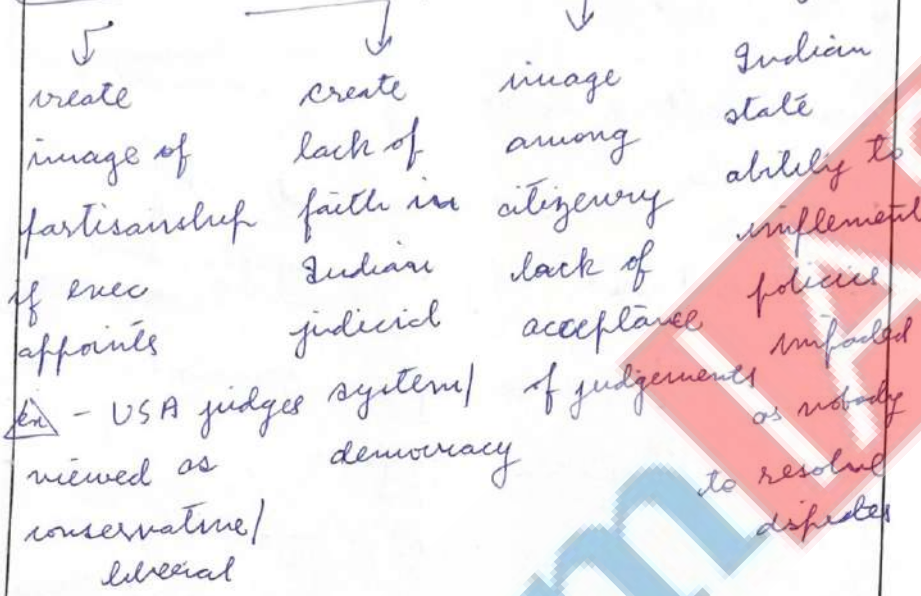 create
image of
partisanship
if exec
appoints
ex - USA judges
viewed as
conservative/
liberal
create
lack of
faith in
Indian
judicial
system/
democracy
image
among
citizenry
lack of
acceptance
of judgements
Indian
state
ability to
implement
policies
impaded
as nobody
to resolve
disputes